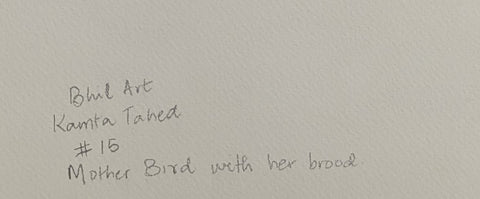 Bhil Art
Kamta Tahed
#15
Mother Bird with her brood